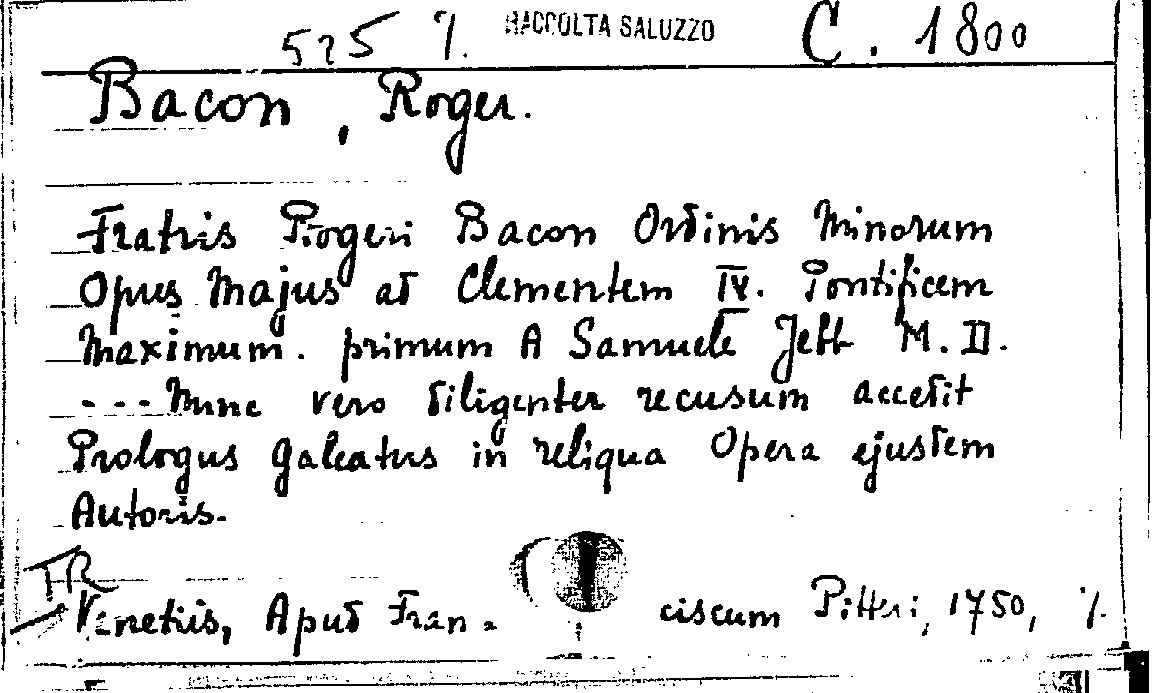 525 %. RACCOLTA SALUZZO C. 1800
Bacon, Roger.
Fratris Rogeri Bacon Ordinis Minorum
Opus Majus ad Clementem IV. Pontificem
Maximum. primum A Samuele Jebb M.D.
---Nunc vero diligenter recusum accedit
Prologus Galeatus in reliqua Opera ejusdem
Autoris.
TR
Venetiis, Apud Fran- ciscum Pitteri, 1750, %.